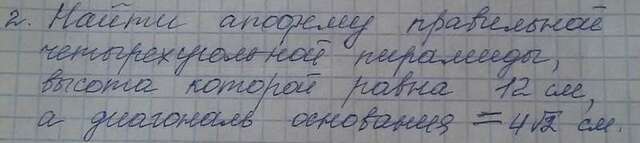 2. Найти апофему правильной
четырехугольной пирамиды,
высота которой равна 12 см,
а диагональ основания = 4√2 см.